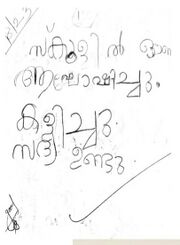 സ്കൂളിൽ ഓണ
ആഘോഷിച്ചു.
കളിച്ചു.
സദ്യ ഉണ്ടു.